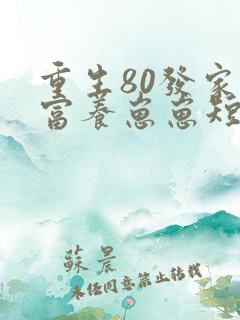 重生80發家
富養崽崽短
蘇晨
未經同意禁止轉載